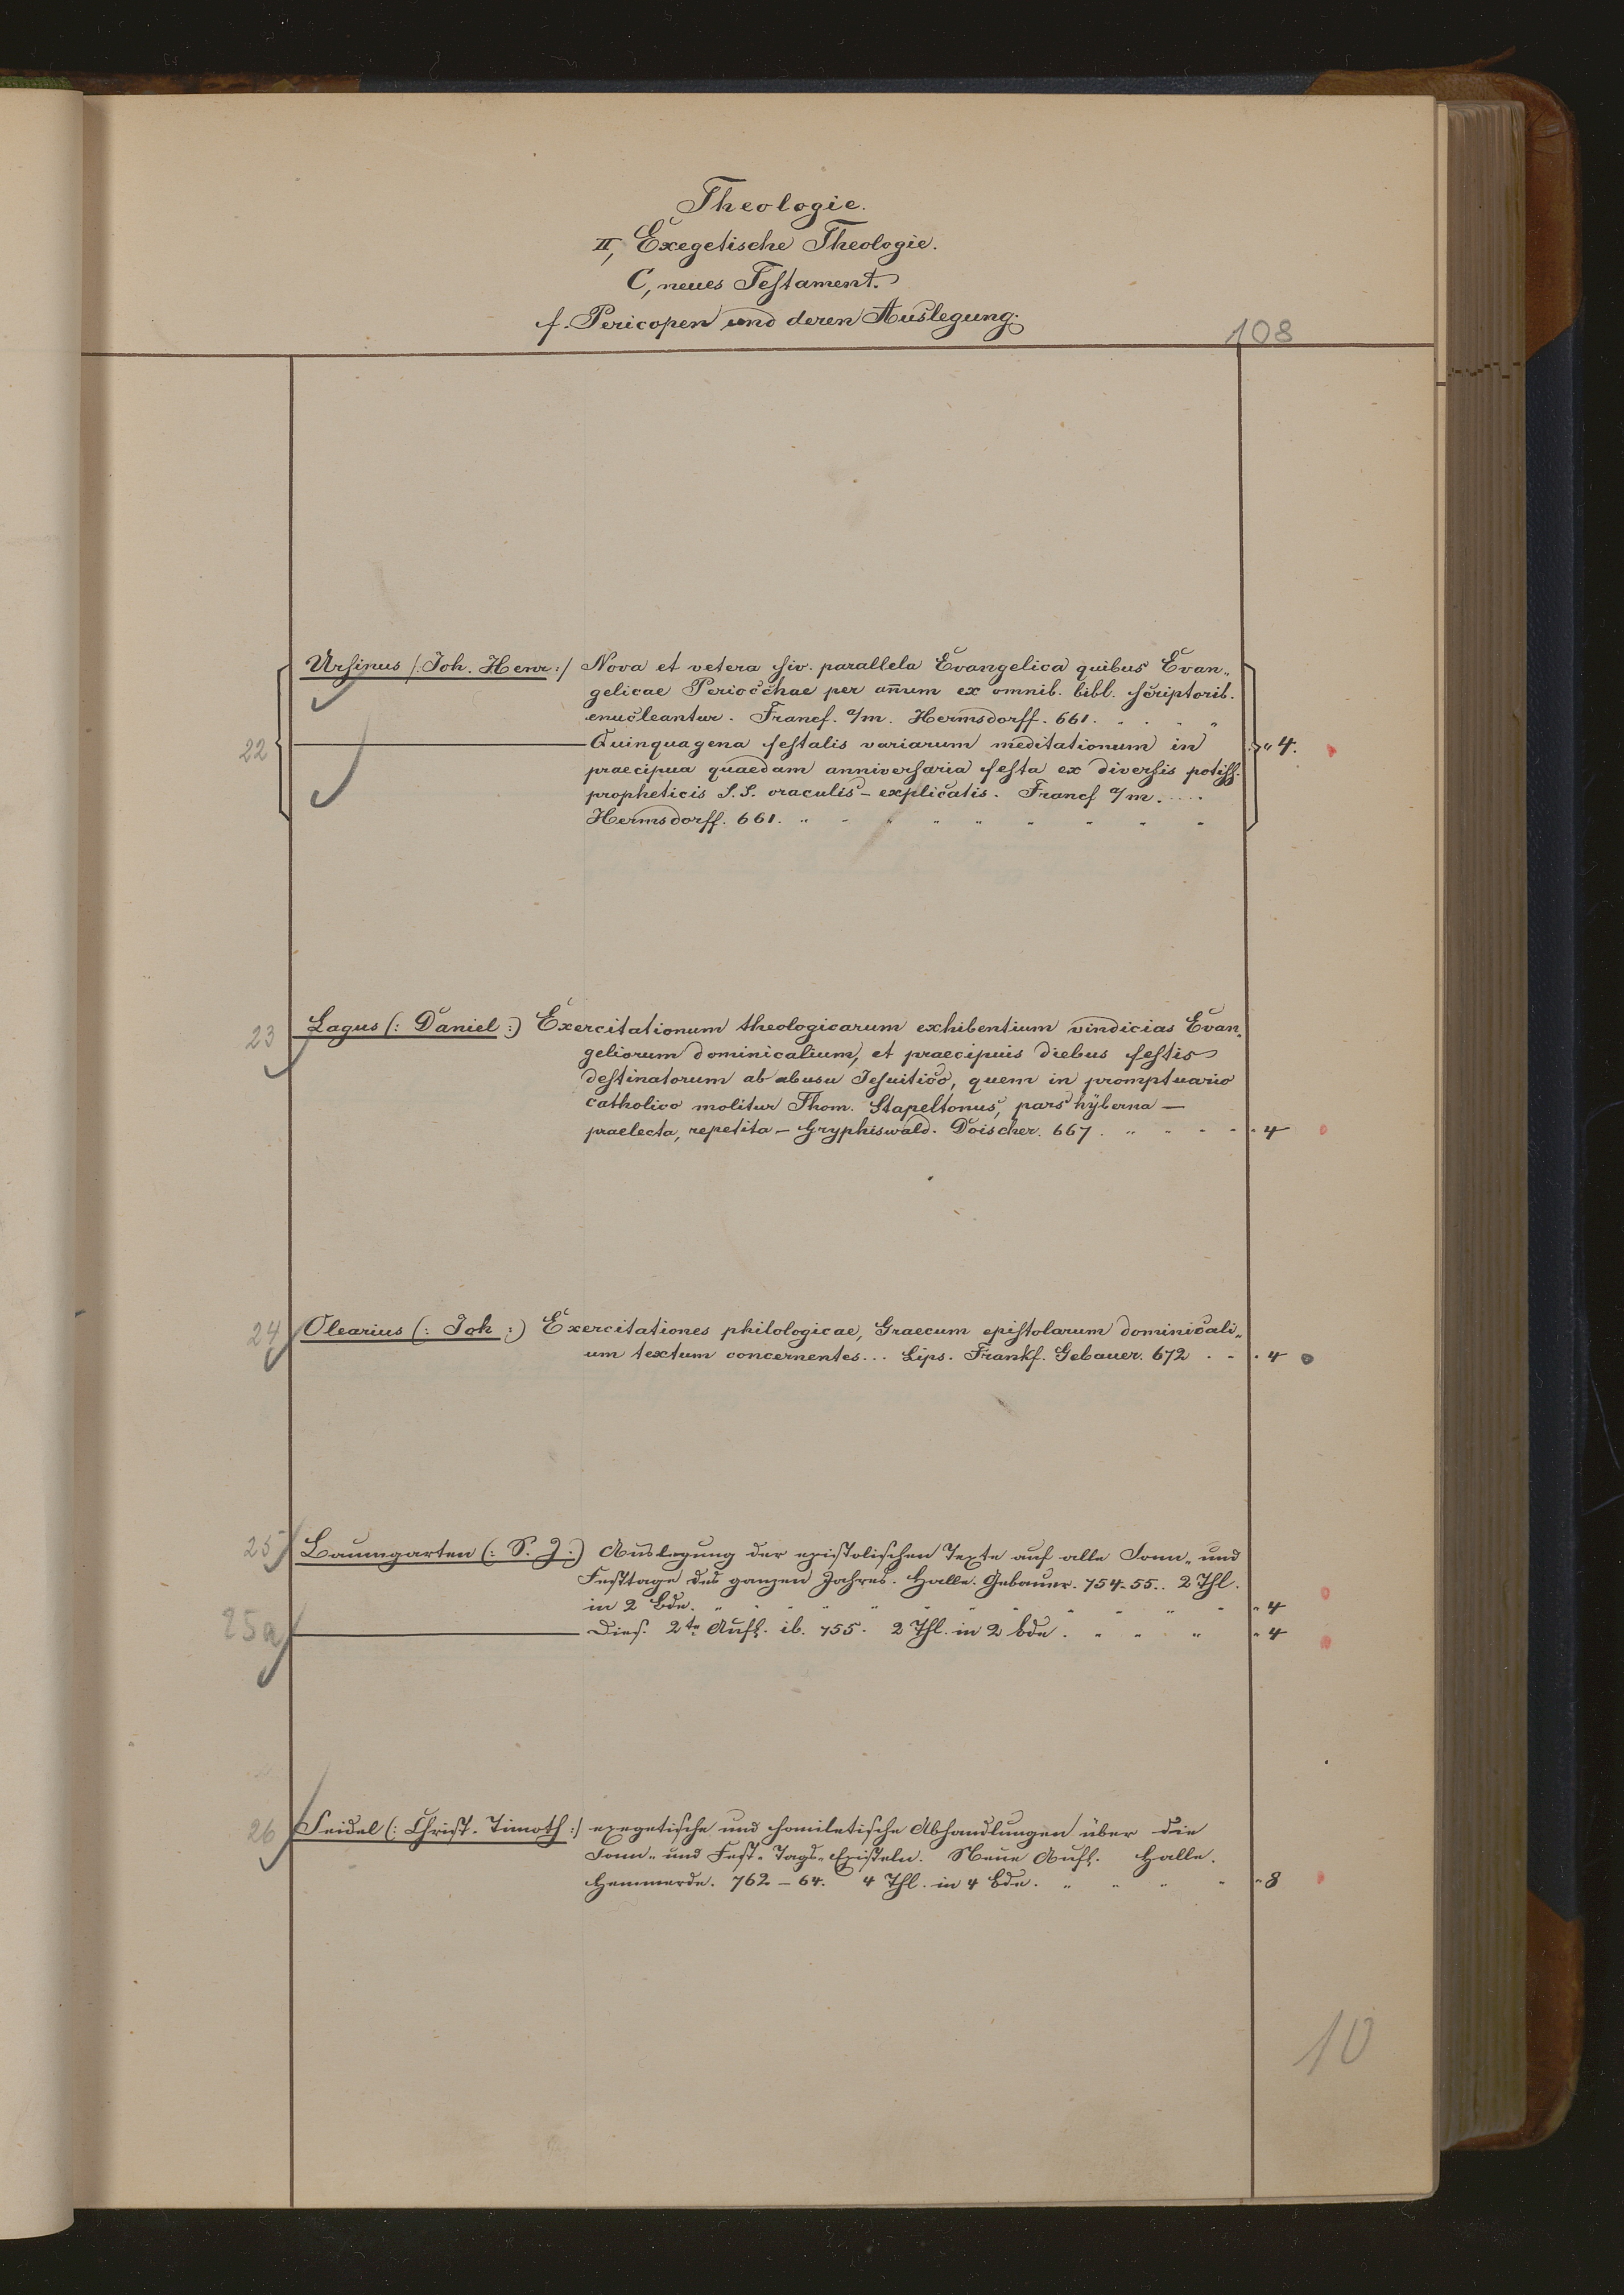 Theologie.
II, Exegetische Theologie.
C, neues Testament.
f. Pericopen und deren Auslegung.
108
Ursinus (: Joh. Henr :) Nova et vetera siv. parallela Evangelica quibus Evan-
gelicae Periocchae per an̄um ex omnib. bibl. scriptorib.
enucleantur. Francf. a/m. Hermsdorff. 661. . . . "
22 Quinquagena festalis variarum meditationum in " 4.
praecipua quaedam anniversaria festa ex diversis potiss.
propheticis S. S. oraculis – explicatis. Francf a/m. ....
Hermsdorff. 661. " " " " " " " " "
23 Lagus (: Daniel :) Exercitationum theologicarum exhibentium vindicias Evan-
geliorum dominicalium, et praecipuis diebus festis
destinatorum ab abusu Jesuitico, quem in promptuario
catholico molitur Thom. Stapeltonus, pars hÿberna —
praelecta, repetita – Gryphiswald. Doischer. 667. " " " " " 4
24 Olearius (: Joh :) Exercitationes philologicae, Graecum epistolarum dominicali-
um textum concernentes... Lips. Frankf. Gebauer. 672 . . . 4
25 Baumgarten (: S. J. :) Auslegung der epistolischen Texte auf alle Sonn- und
Festtage des ganzen Jahres. Halle. Gebauer. 754-55.. 2 Thl.
in 2 Bde. " " " " " " " " " " " " 4
25a Dies. 2te Aufl. ib. 755. 2 Thl. in 2 Bde. " " " " 4
26 Seidel (: Christ. Timoth :) exegetische und homiletische Abhandlungen über die
Sonn- und Fest-Tags-Episteln. Neue Aufl. Halle.
Hemmerde. 762 – 64. 4 Thl. in 4 Bde. " " " " " 8
10